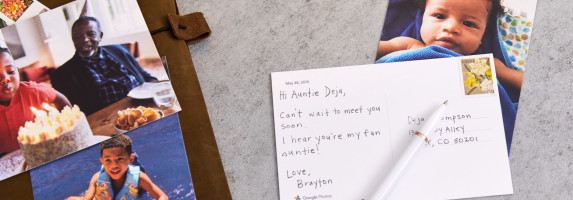 May 28, 2019
Hi Auntie Deja,
Can't wait to meet you
soon.
I hear you're my fun
auntie!
Love,
Brayton
Deja
Alley
CO 80201
Google Photos